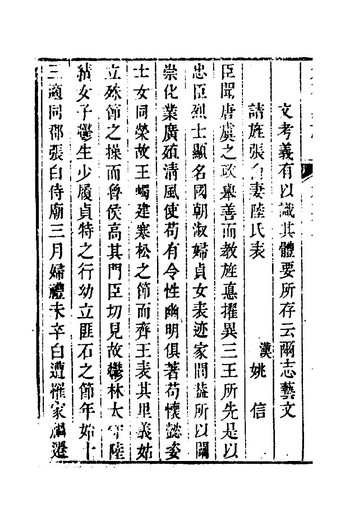 文考義有以識其體要所存云爾志藝文
請旌張白妻陸氏表
漢 姚信
臣聞唐虞之政舉善而教旌德擢異三王所先是以
忠臣烈士顯名國朝淑婦貞女表迹家閭蓋所以闡
崇化業廣殖清風使苟有令性幽明俱著苟懷懿姿
士女同榮故王蠋建寒松之節而齊王表其里義姑
立殊節之操而魯侯高其門臣切見故鬱林太守陸
績女子鬱生少履貞特之行幼立匪石之節年始十
三適同郡張白侍廟三月婦禮未卒白遭罹家禍遷